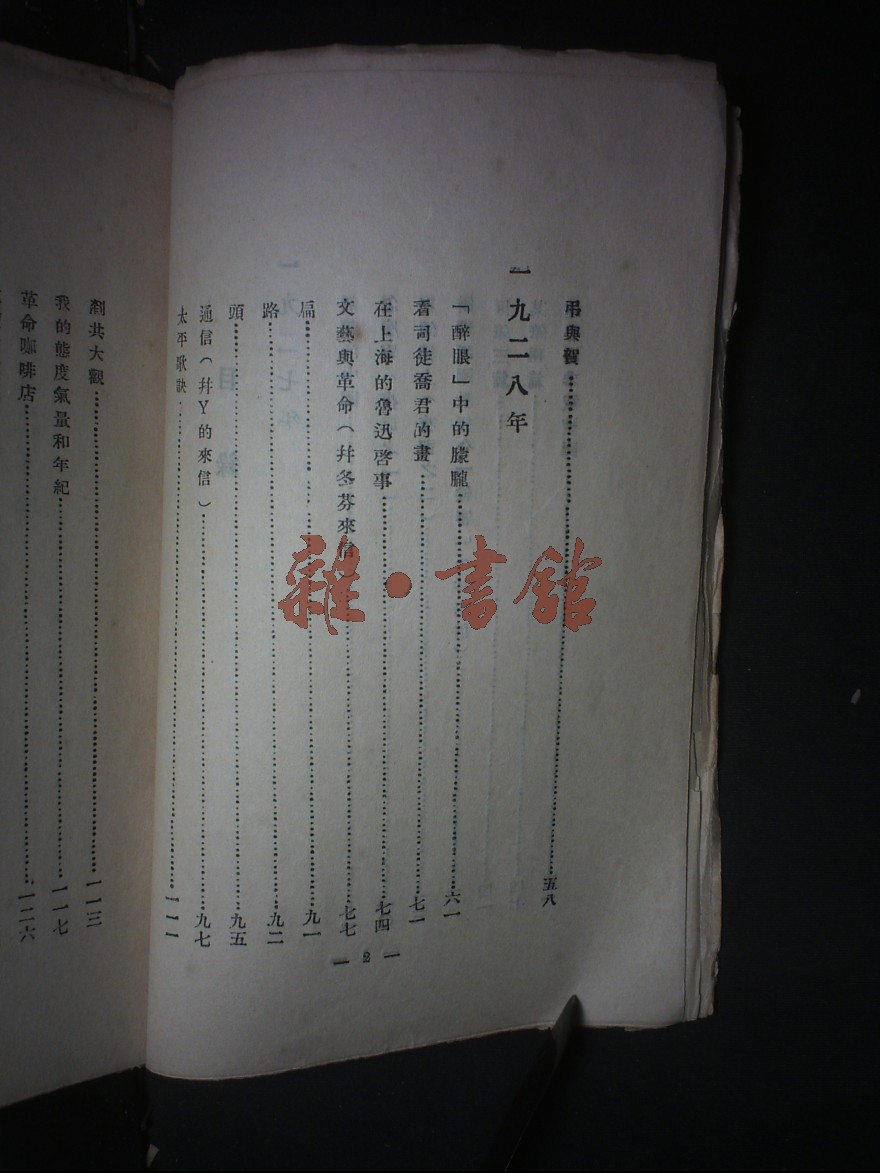 弔與賀……五八
一九二八年
「醉眼」中的朦朧……六一
看司徒喬君的畫……七一
在上海的魯迅啓事……七四
文藝與革命（幷冬芬來信）……七七
扁……九一
路……九二
頭……九五
通信（幷Y的來信）……九七
太平歌訣……一一一
— 2 —
剷共大觀……一一三
我的態度氣量和年紀……一一七
革命咖啡店……一二六
雜·書館